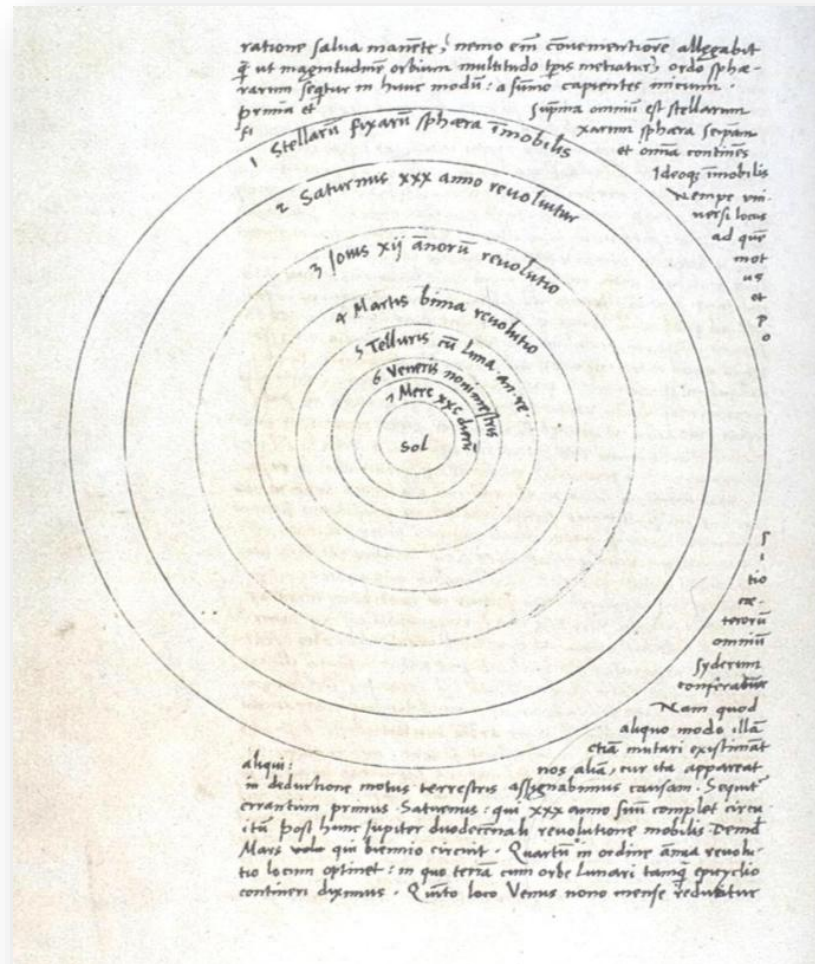 ratione salua manēte, nemo em̄ cōuenientiorē allegabit
q̄ ut magnitudinē orbium multitudo tp̄is metiatur, ordo sphæ-
rarum seqitur in hunc modū: a sūmo capientes inicium.
prima et suprema omniū est stellarum
fi xarum sphæra seipsam
et omīa continēs
Ideoqз īmobilis
Nempe uni-
uersi locus
ad quē
mot
us
et
p
o
1 Stellarū fixarū sphæra īmobilis
2 Saturnus xxx anno reuoluitur
3 Iouis xij ānorū reuolutio
4 Martis bima reuolutio
5 Telluris cū Luna an. re.
6 Veneris nonimestris
7 Merc xxc dierū
Sol
s
i
tio
cæ-
terorū
omniū
syderum
conferatur
Nam quod
aliquo modo illā
etiā mutari existimāt
aliqui: nos aliā, cur ita appareat
in deductione motus terrestris assignabimus causam. Sequit
errantium primus Saturnus: qui xxx anno suū complet circu-
itū post hunc Iupiter duodecennali reuolutione mobilis Deinde
Mars qui biennio circuit. Quartū in ordine ānua reuolu-
tio locum optinet: in quo terrā cum orbe Lunari tamq̄ epicyclio
contineri diximus. Quīto loco Venus nono mense reducitur